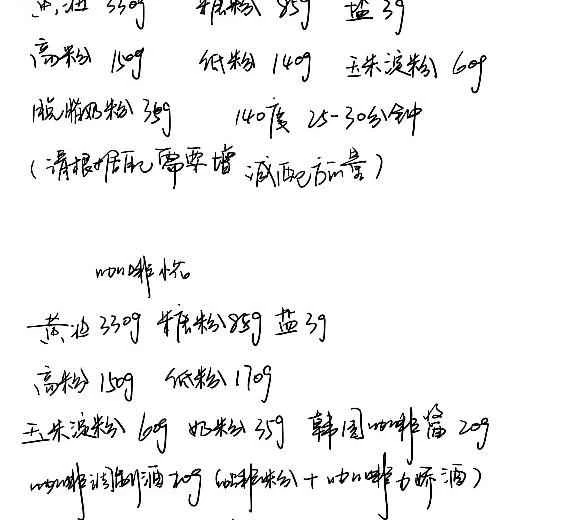 黄油 330g 糖粉 85g 盐 3g
高粉 150g 低粉 140g 玉米淀粉 60g
脱脂奶粉 35g 140度 25-30分钟
(请根据自己需要增减配方的量)
咖啡味
黄油 330g 糖粉 85g 盐 3g
高粉 150g 低粉 170g
玉米淀粉 60g 奶粉 35g 韩国咖啡酱 20g
咖啡调制酒 20g (咖啡粉+咖啡力娇酒)